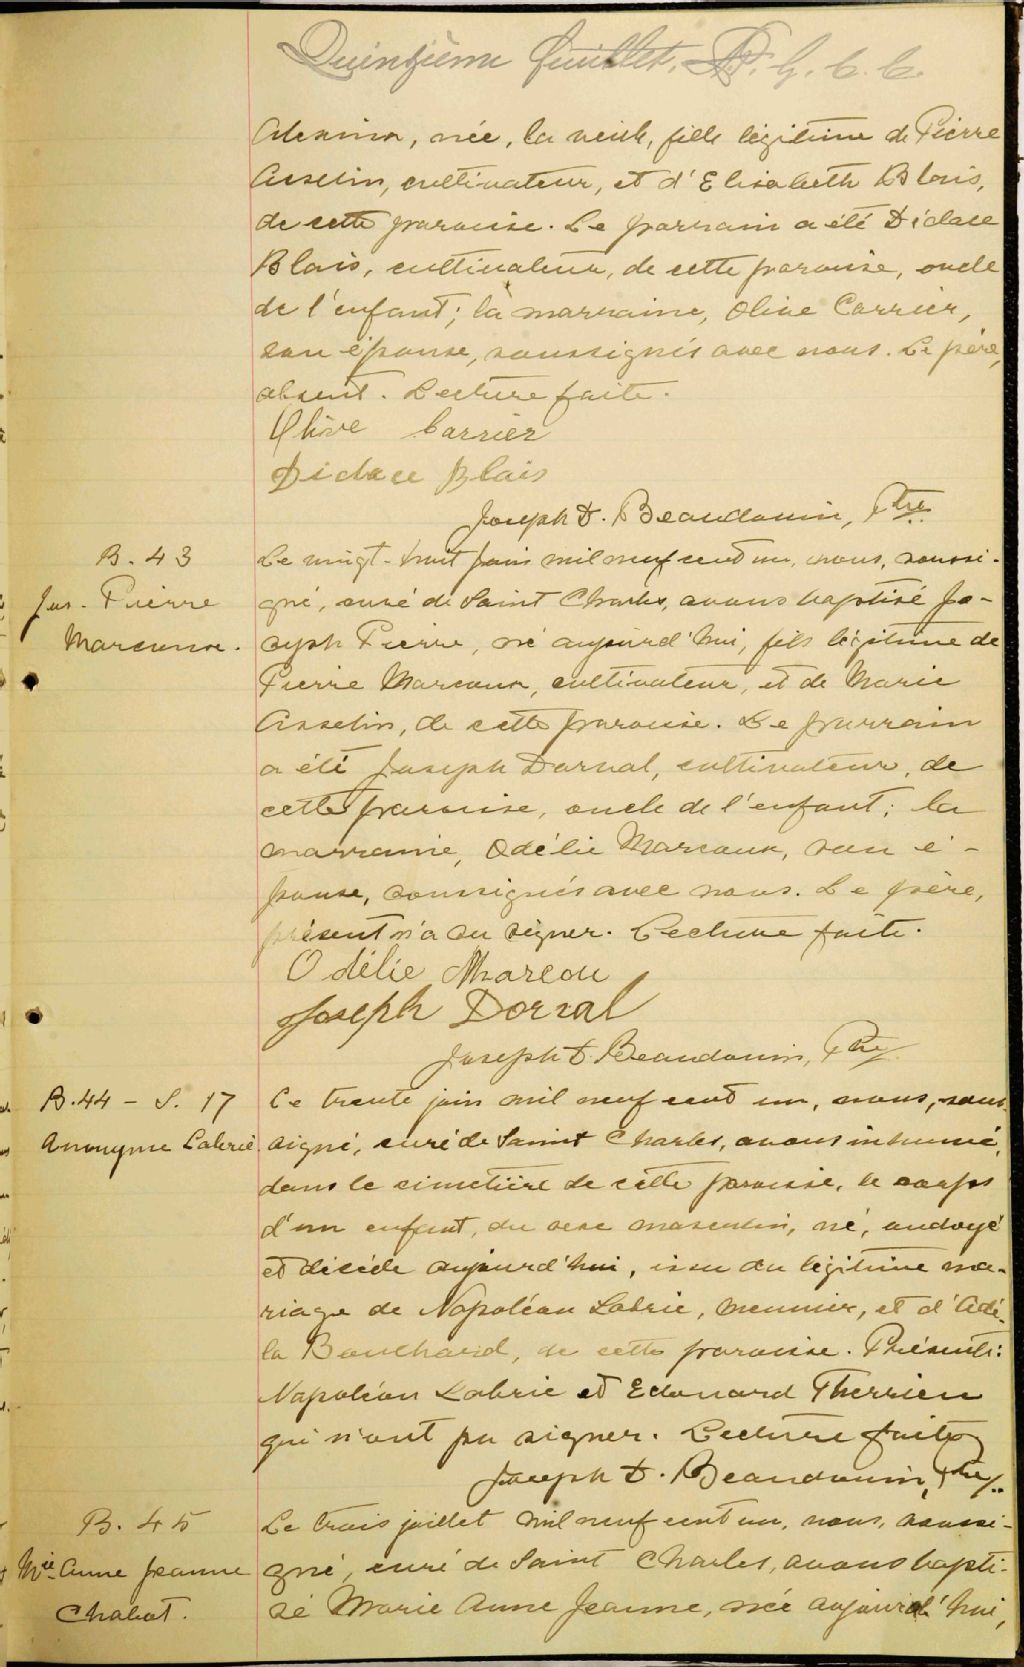 Quinzième feuillet. P. G. C. C.
Alexina, née, la veille, fille légitime de Pierre
Asselin, cultivateur, et d'Elisabeth Blais,
de cette paroisse. Le parrain a été Didace
Blais, cultivateur, de cette paroisse, oncle
de l'enfant; la marraine, Olive Carrier,
son épouse, soussignés avec nous. Le père,
absent. Lecture faite.
Olive Carrier
Didace Blais
Joseph D. Beaudouin, Ptre
B. 43
Jos. Pierre
Marcoux.
Le vingt-huit juin mil neuf cent un, nous, soussi-
gné, curé de Saint Charles, avons baptisé Jo-
seph Pierre, né aujourd'hui, fils légitime de
Pierre Marcoux, cultivateur, et de Marie
Asselin, de cette paroisse. Le parrain
a été Joseph Dorval, cultivateur, de
cette paroisse, oncle de l'enfant; la
marraine, Odélie Marcoux, son é-
pouse, soussignés avec nous. Le père,
présent n'a su signer. Lecture faite.
Odélie Marcou
Joseph Dorval
Joseph D. Beaudouin, Ptre
B. 44 - S. 17
Anonyme Labrie.
Le trente juin mil neuf cent un, nous, sous-
signé, curé de Saint Charles, avons inhumé,
dans le cimetière de cette paroisse, le corps
d'un enfant, du sexe masculin, né, ondoyé
et décédé aujourd'hui, issu du légitime ma-
riage de Napoléon Labrie, meunier, et d'Adè-
la Bouchard, de cette paroisse. Présents:
Napoléon Labrie et Edouard Therrien
qui n'ont pu signer. Lecture faite
Joseph D. Beaudouin, Ptre
B. 45
Mie Anne Jeanne
Chabot.
Le trois juillet mil neuf cent un, nous, soussi-
gné, curé de Saint Charles, avons bapti-
sé Marie Anne Jeanne, née aujourd'hui,